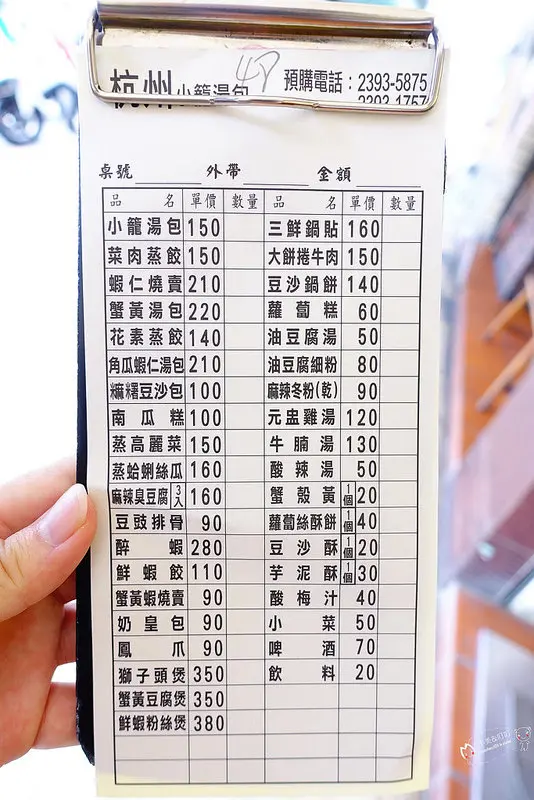 杭州小籠湯包 49 預購電話：2393-5875
2393-1757
桌號 外帶 金額
品名 單價 數量 品名 單價 數量
小籠湯包 150 三鮮鍋貼 160
菜肉蒸餃 150 大餅捲牛肉 150
蝦仁燒賣 210 豆沙鍋餅 140
蟹黃湯包 220 蘿蔔糕 60
花素蒸餃 140 油豆腐湯 50
角瓜蝦仁湯包 210 油豆腐細粉 80
糯糬豆沙包 100 麻辣冬粉(乾) 90
南瓜糕 100 元盅雞湯 120
蒸高麗菜 150 牛腩湯 130
蒸蛤蜊絲瓜 160 酸辣湯 50
麻辣臭豆腐 3入 160 蟹殼黃 1個 20
豆豉排骨 90 蘿蔔絲酥餅 1個 40
醉蝦 280 豆沙酥 1個 20
鮮蝦餃 110 芋泥酥 1個 30
蟹黃蝦燒賣 90 酸梅汁 40
奶皇包 90 小菜 50
鳳爪 90 啤酒 70
獅子頭煲 350 飲料 20
蟹黃豆腐煲 350
鮮蝦粉絲煲 380